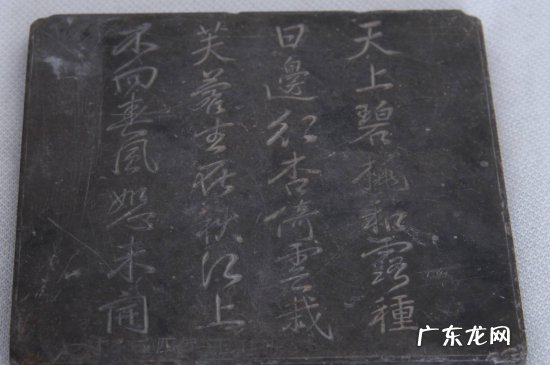 天上碧桃和露種
日邊紅杏倚雲栽
芙蓉生在秋江上
不向春風怨未開
广东龙网